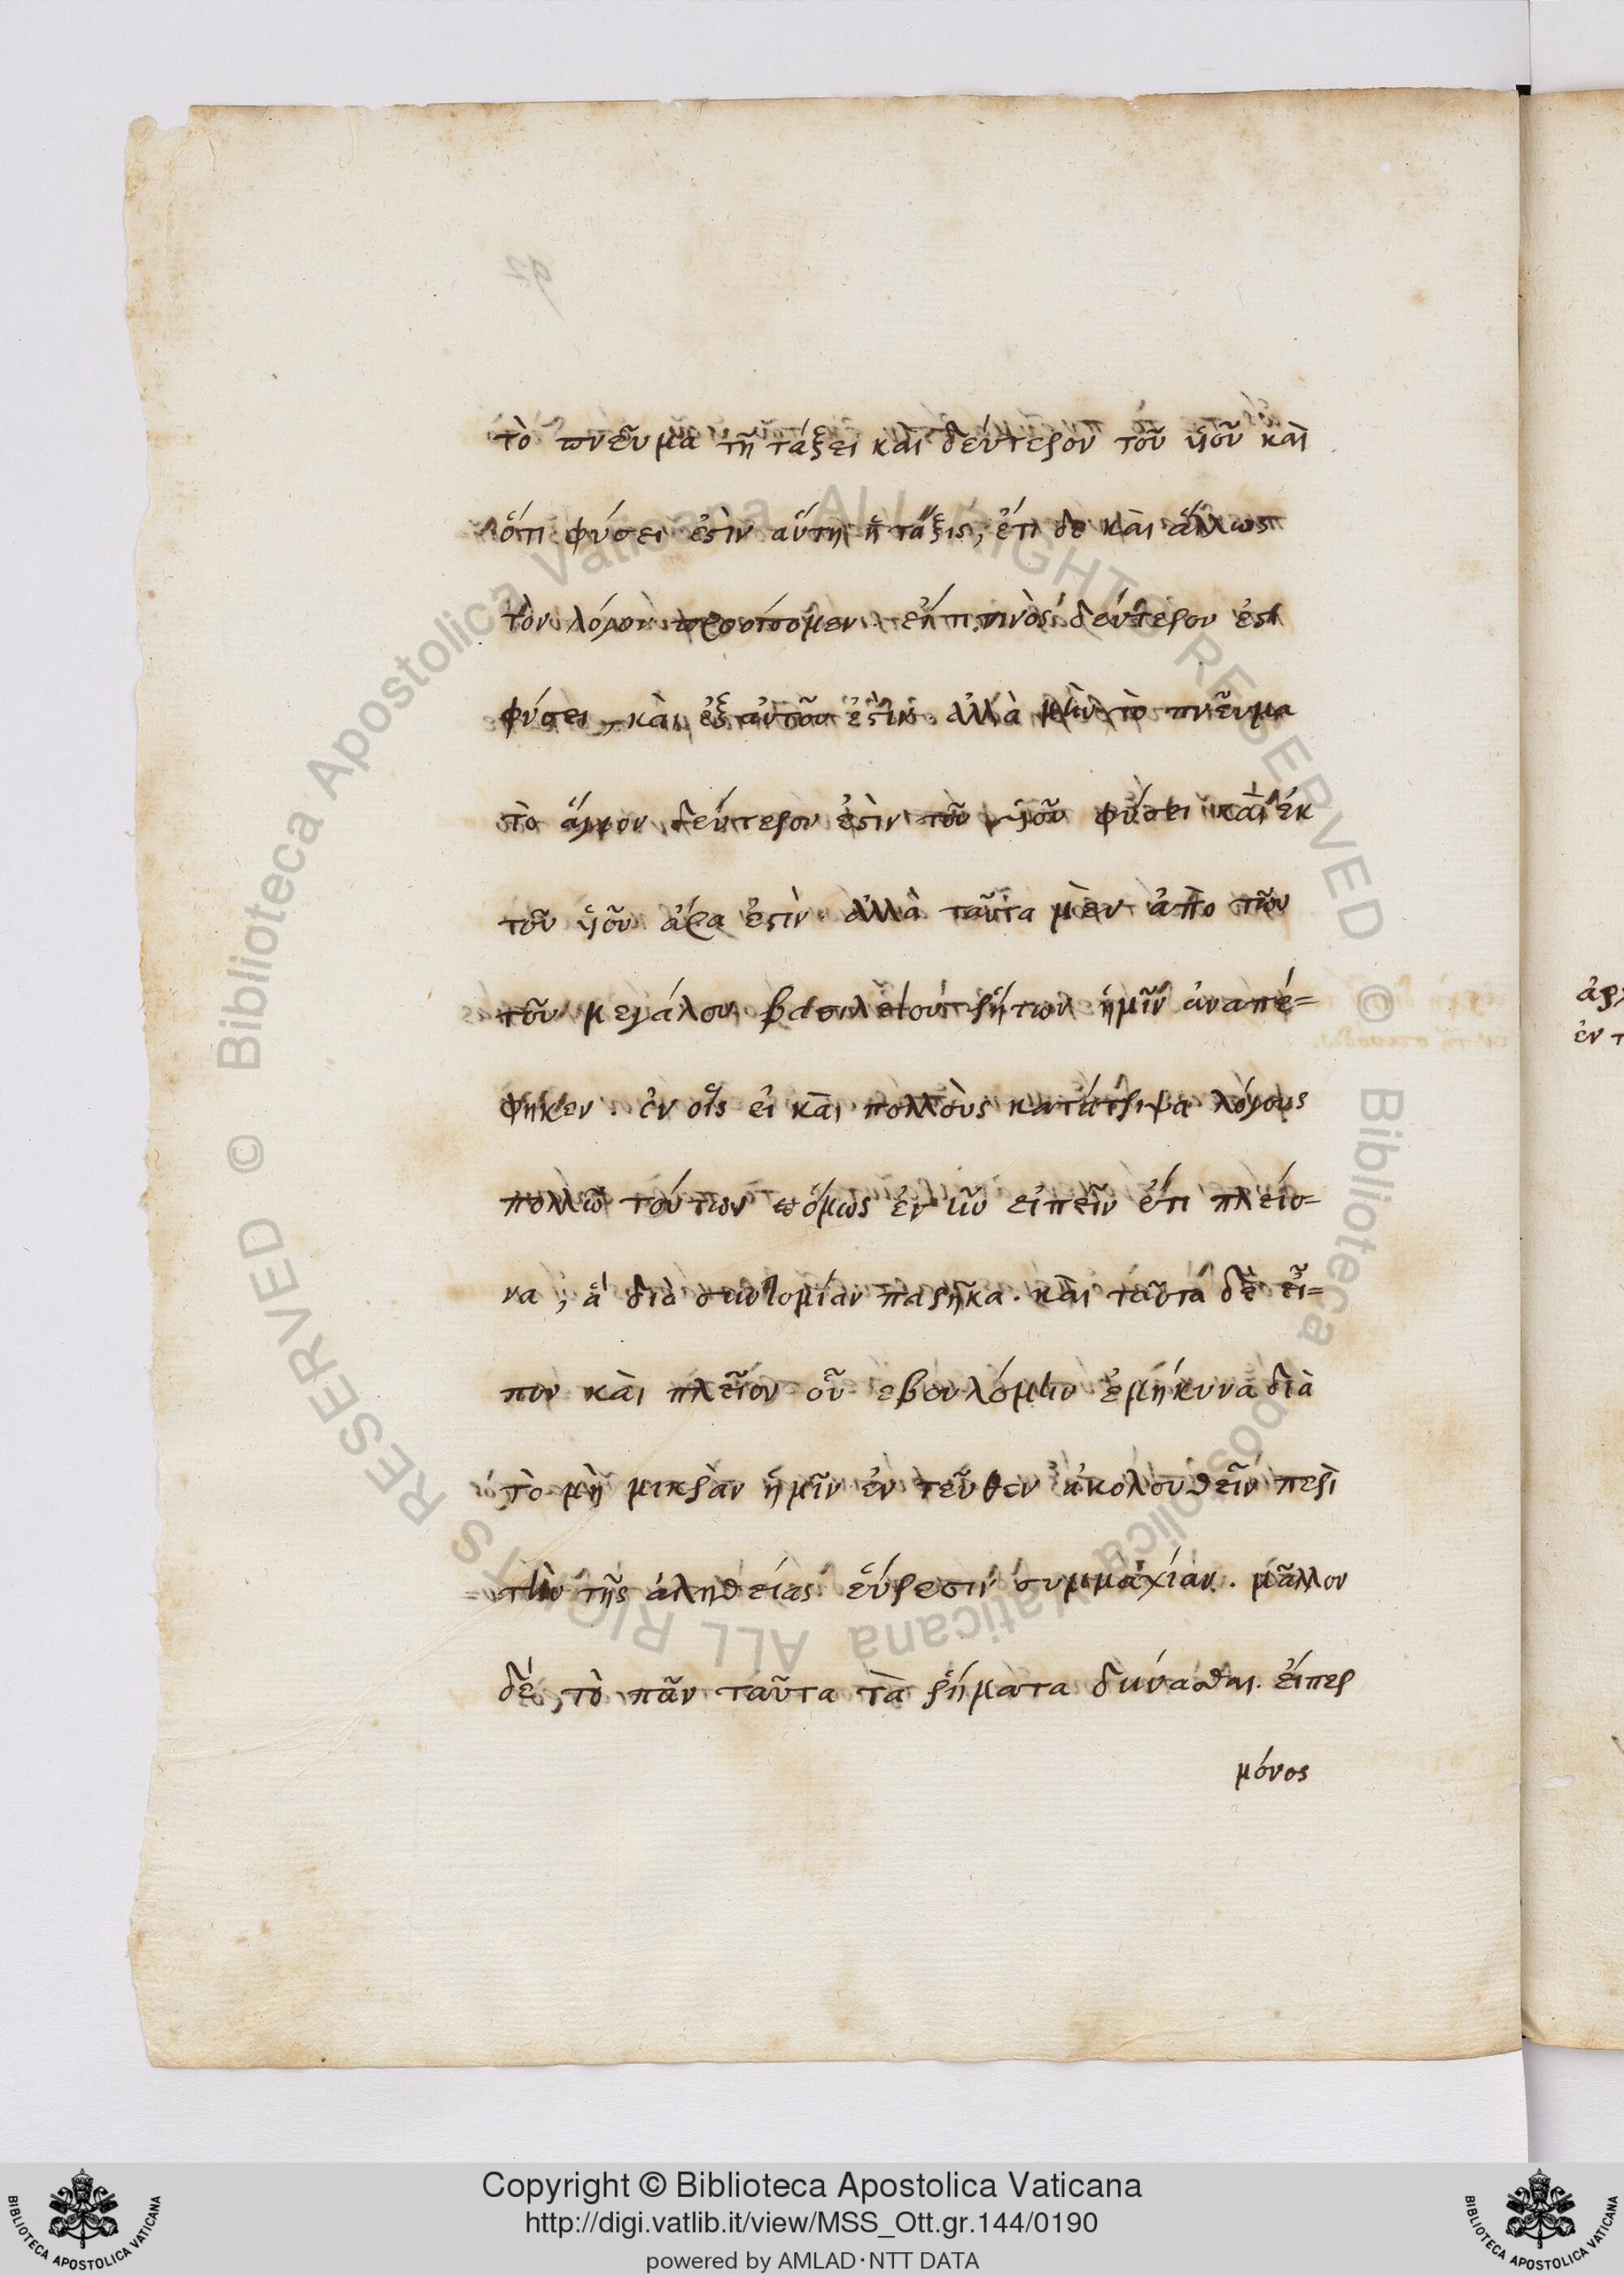 τὸ πνεῦμα τῇ τάξει καὶ δεύτερον τοῦ υἱοῦ καὶ
ὅτι φύσει ἐστὶν αὕτη ἡ τάξις, ἔτι δὲ καὶ ἄλλως
τὸν λόγον προοίσομεν. εἴ τι τινὸς δεύτερον ἐστὶ
φύσει, καὶ ἐξ αὐτοῦ ἐστὶν. ἀλλὰ μὴν τὸ πνεῦμα
τὸ ἅγιον δεύτερον ἐστὶν τοῦ υἱοῦ φύσει καὶ ἐκ
τοῦ υἱοῦ ἄρα ἐστὶν. ἀλλὰ ταῦτα μὲν ἀπὸ τῶν
τοῦ μεγάλου βασιλείου ῥητῶν ἡμῖν ἀναπέ=
φηκεν. ἐν οἷς εἰ καὶ πολλοὺς κατατρίψα λόγους
πολλῷ τούτων ὅμως ἐνῆν εἰπεῖν ἔτι πλείο=
να, ἃ διὰ συντομίαν παρῆκα. καὶ ταῦτα δὲ εἶ=
πον καὶ πλεῖον οὗ εβουλόμην ἐμήκυνα διὰ
τὸ μὴ μικρὰν ἡμῖν ἐν τεῦθεν ἀκολουθεῖν περὶ
τὴν τῆς ἀληθείας εὕρεσιν συμμαχίαν. μᾶλλον
δὲ, τὸ πᾶν ταῦτα τὰ ῥήματα δύνασθαι. εἴπερ
μόνος
Copyright © Biblioteca Apostolica Vaticana
http://digi.vatlib.it/view/MSS_Ott.gr.144/0190
powered by AMLAD·NTT DATA